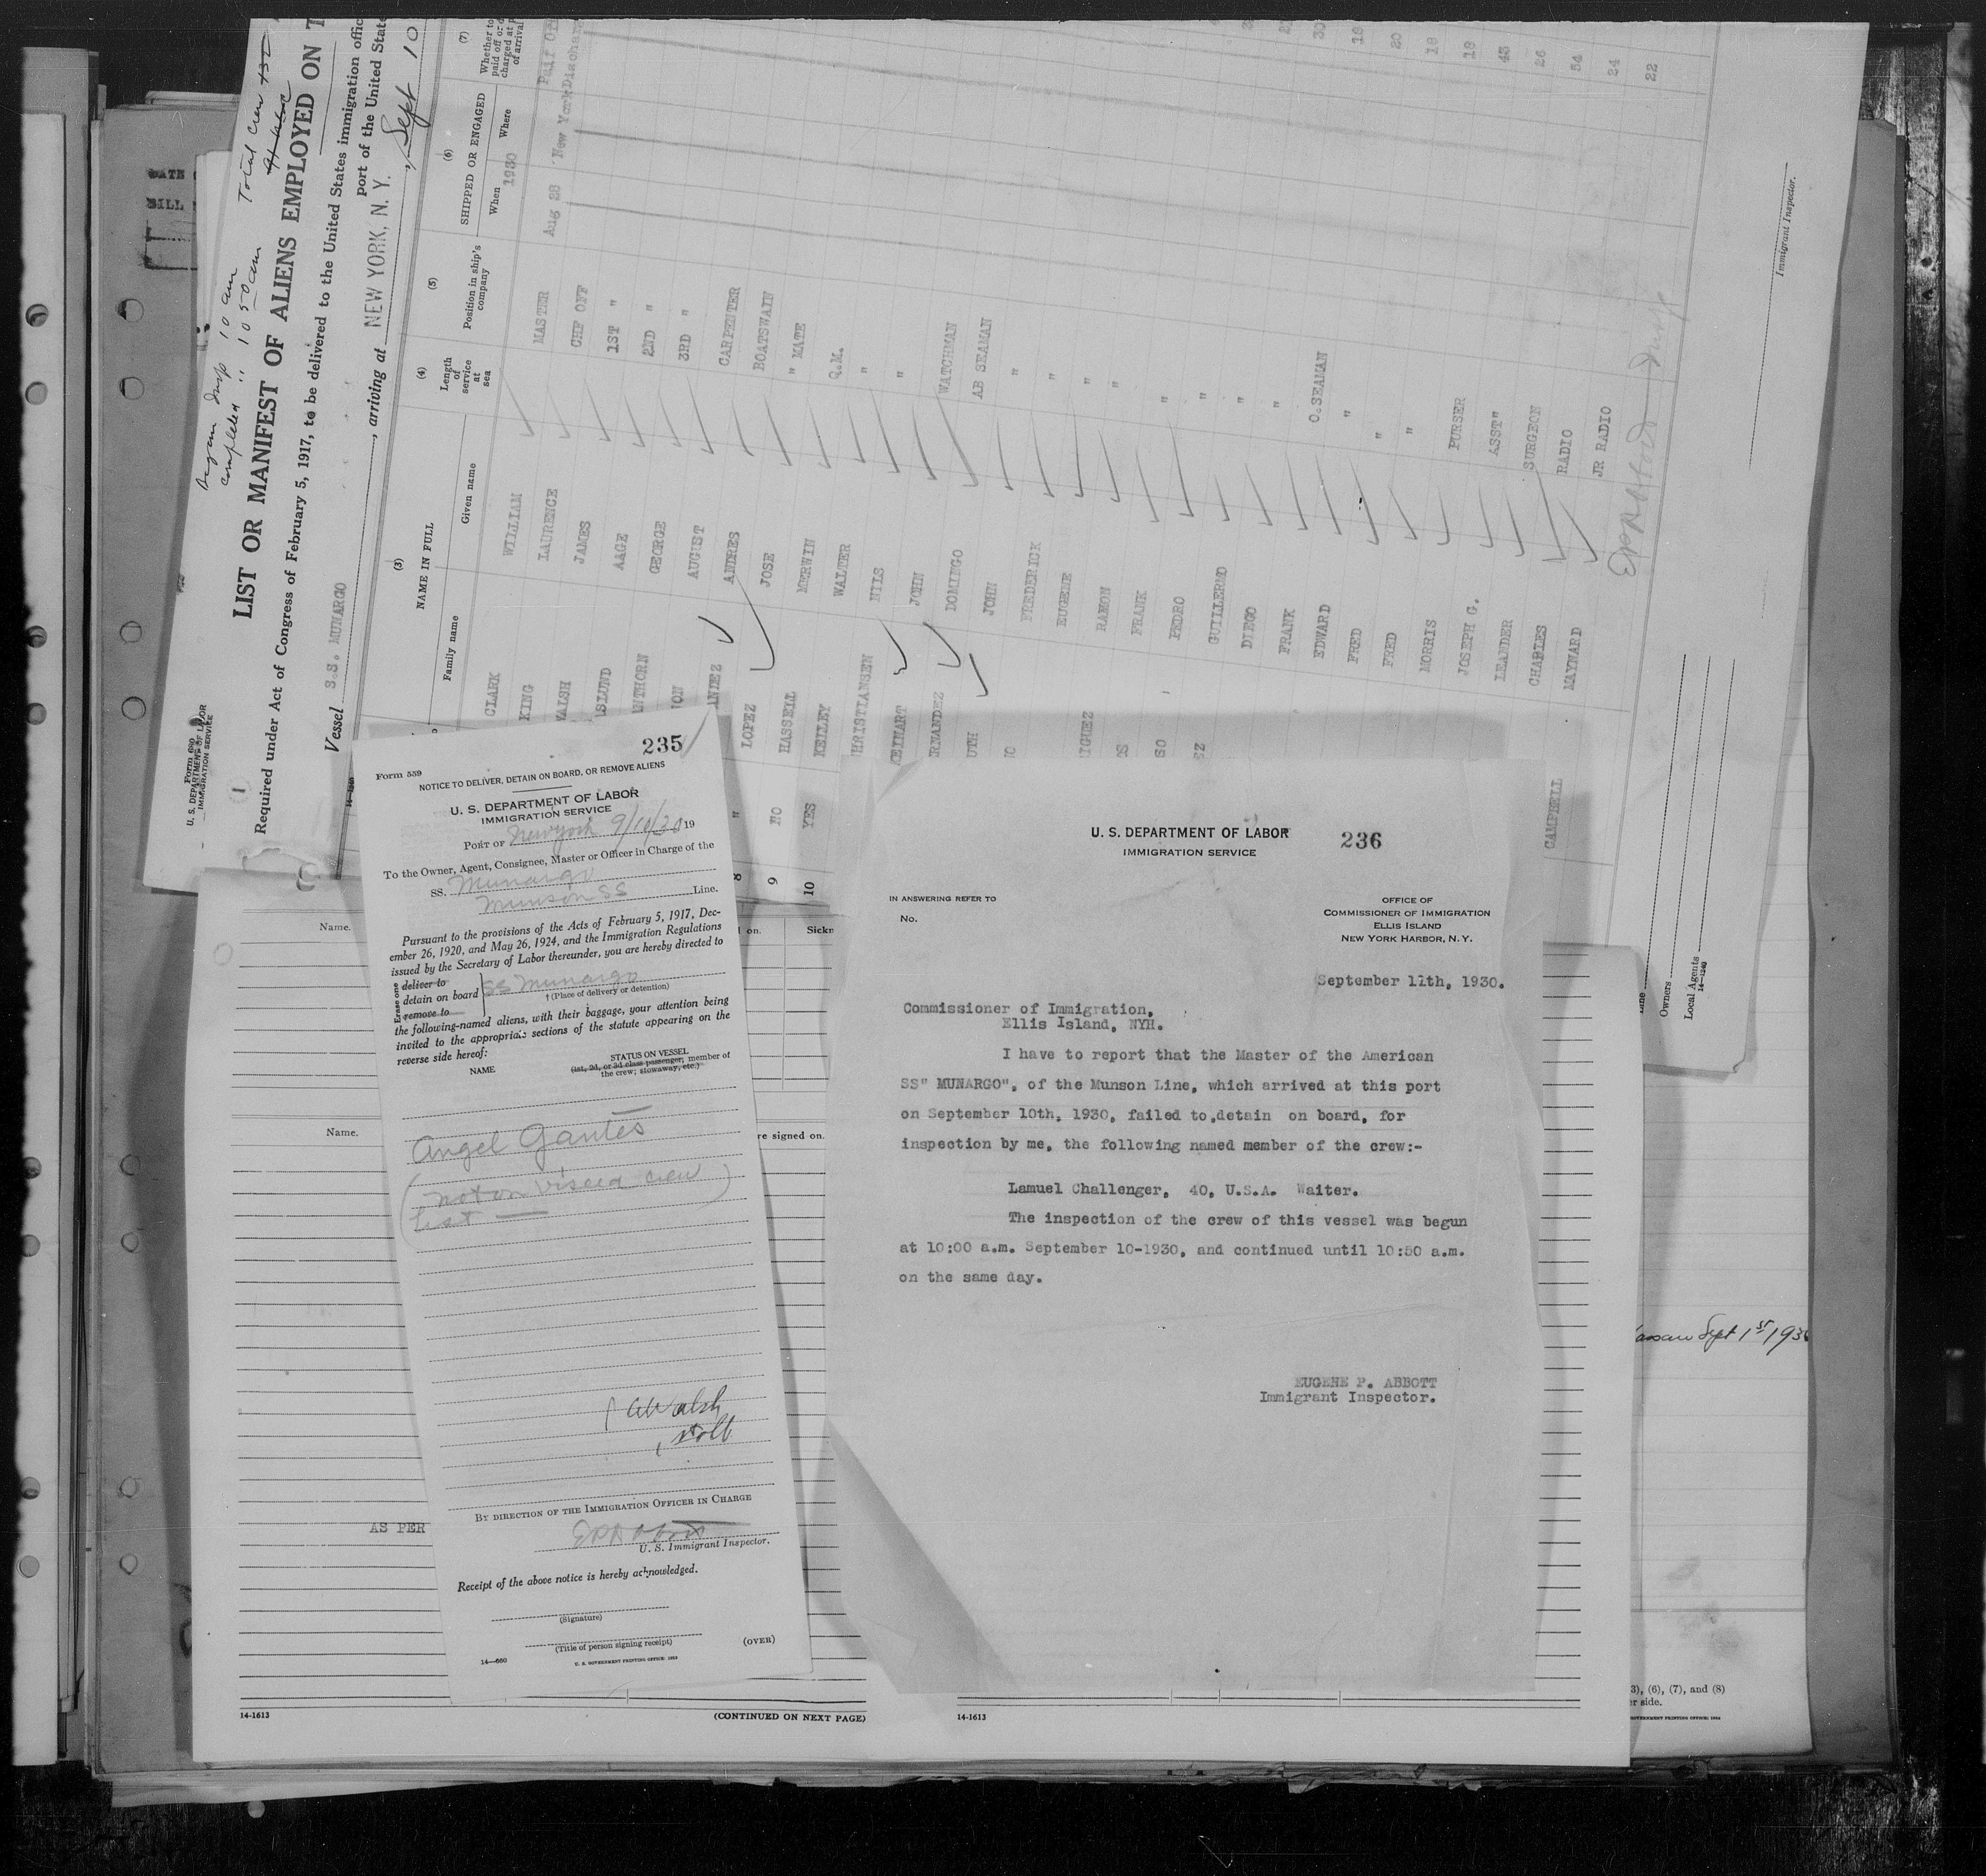 Began Insp 10 am
completed " 10 50 am
Total Crew
LIST OR MANIFEST OF ALIENS EMPLOYED ON T
Required under Act of Congress of February 5, 1917, to be delivered to the United States immigration offic
port of the United State
Vessel S.S. MUNARGO, arriving at NEW YORK, N. Y., Sept 10
Form 680
U. S. DEPARTMENT OF LABOR
IMMIGRATION SERVICE
1
(3)
NAME IN FULL
Family name
Given name
(4)
Length of service at sea
(5)
Position in ship's company
(6)
SHIPPED OR ENGAGED
When
Where
(7)
Whether to
paid off or d
charged at p
of arrival
1930
CLARK WILLIAM MASTER Aug 28 New York
KING LAURENCE CHF OFF
WALSH JAMES 1ST "
ASLUND AAGE 2ND "
GEORGE 3RD "
AUGUST CARPENTER
ANDRES BOATSWAIN
LOPEZ JOSE " MATE
HASSELL MERWIN Q.M.
KELLEY WALTER "
HRISTIANSEN NILS "
JOHN WATCHMAN
RNANDEZ DOMINGO AB SEAMAN
UTH JOHN "
FREDERICK "
EUGENE "
IGUEZ RAMON "
FRANK "
PEDRO "
GUILLERMO "
DIEGO "
FRANK O.SEAMAN
EDWARD "
FRED "
FRED "
MORRIS PURSER
JOSEPH G. ASST"
LEANDER SURGEON
CHARLES RADIO
CAMPBELL MAYNARD JR RADIO
30
18
20
18
18
43
26
54
24
22
8 "
9 NO
10 YES
Immigrant Inspector.
Owners
Local Agents
14-1240
235
Form 559
NOTICE TO DELIVER, DETAIN ON BOARD, OR REMOVE ALIENS
U. S. DEPARTMENT OF LABOR
IMMIGRATION SERVICE
PORT OF New York 9/10/30 19
To the Owner, Agent, Consignee, Master or Officer in Charge of the
SS. Munargo
Munson SS Line.
Pursuant to the provisions of the Acts of February 5, 1917, Dec-
ember 26, 1920, and May 26, 1924, and the Immigration Regulations
issued by the Secretary of Labor thereunder, you are hereby directed to
Erase one
deliver to
detain on board SS Munargo
remove to
† (Place of delivery or detention)
the following-named aliens, with their baggage, your attention being
invited to the appropriate sections of the statute appearing on the
reverse side hereof:
NAME
STATUS ON VESSEL
(1st, 2d, or 3d class passenger; member of
the crew; stowaway, etc.)
Angel Gantes
(not on visaed crew
list)
By direction of the Immigration Officer in Charge
EPAbbott
U. S. Immigrant Inspector.
Receipt of the above notice is hereby acknowledged.
(Signature)
(Title of person signing receipt)
(OVER)
14—560
U. S. GOVERNMENT PRINTING OFFICE
236
U. S. DEPARTMENT OF LABOR
IMMIGRATION SERVICE
IN ANSWERING REFER TO
No.
OFFICE OF
COMMISSIONER OF IMMIGRATION
ELLIS ISLAND
NEW YORK HARBOR, N.Y.
September 11th, 1930.
Commissioner of Immigration,
Ellis Island, NYH.
I have to report that the Master of the American
SS" MUNARGO", of the Munson Line, which arrived at this port
on September 10th, 1930, failed to,detain on board, for
inspection by me, the following named member of the crew:-
Lamuel Challenger, 40, U.S.A. Waiter.
The inspection of the crew of this vessel was begun
at 10:00 a.m. September 10-1930, and continued until 10:50 a.m.
on the same day.
EUGENE P. ABBOTT
Immigrant Inspector.
Name.
on.
Sickn
Name.
re signed on.
AS PER
14-1613
(CONTINUED ON NEXT PAGE)
14-1613
Sept 1st 1930
3), (6), (7), and (8)
er side.